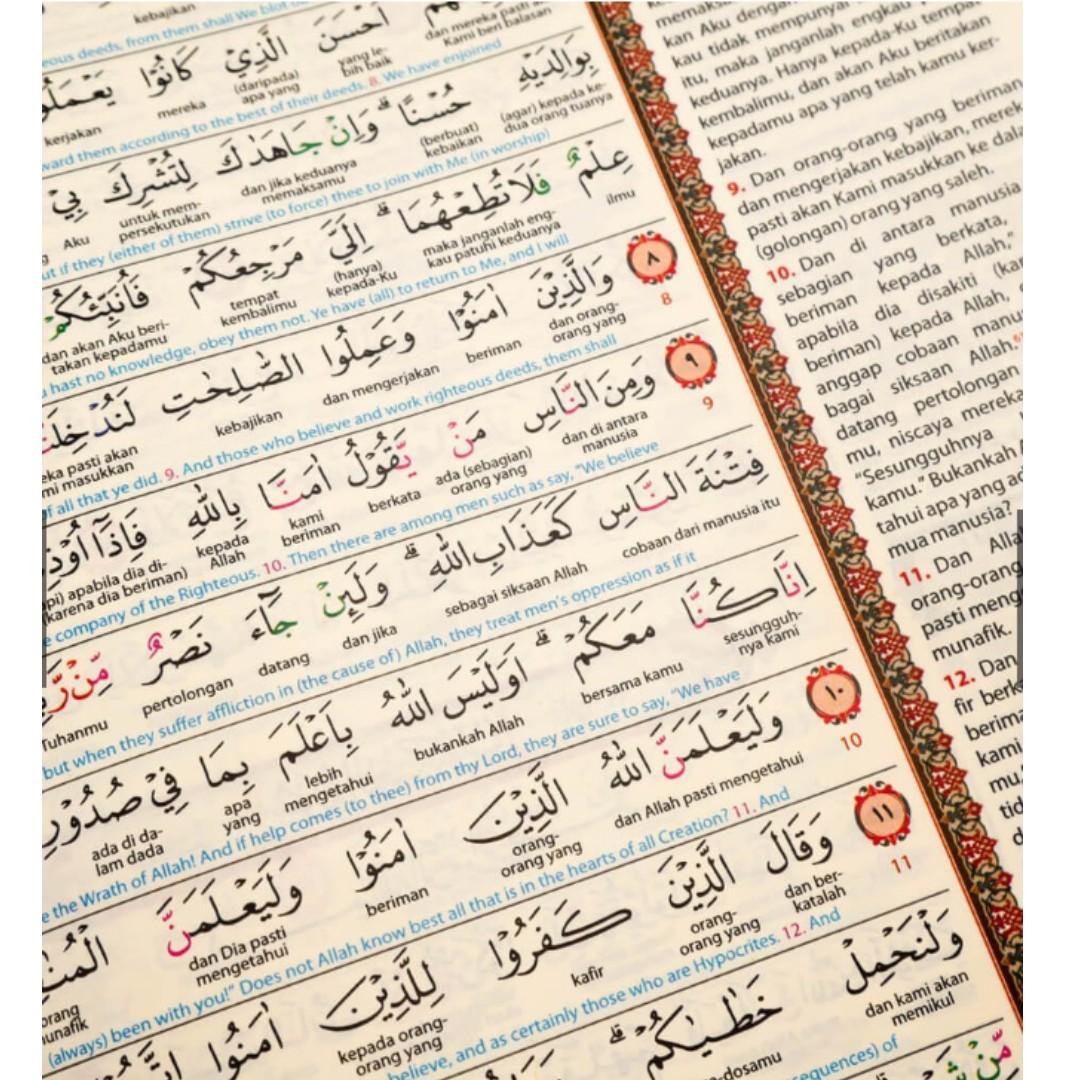 kebajikan
eous deeds, from them shall We blot
اَحْسَنَ الَّذِيْ كَانُوْا يَعْمَلُوْ
dan mereka pasti
Kami beri balasan
yang le-
bih baik
(daripada)
apa yang
mereka
kerjakan
ward them according to the best of their deeds. 8. We have enjoined
بِوَالِدَيْهِ حُسْنًا ۗ وَاِنْ جَاهَدٰكَ لِتُشْرِكَ بِيْ
(agar) kepada ke-
dua orang tuanya
(berbuat)
kebaikan
dan jika keduanya
memaksamu
untuk mem-
persekutukan
Aku
ut if they (either of them) strive (to force) thee to join with Me (in worship)
عِلْمٌ فَلَا تُطِعْهُمَا ۗ اِلَيَّ مَرْجِعُكُمْ فَاُنَبِّئُكُمْ
ilmu
maka janganlah eng-
kau patuhi keduanya
(hanya)
kepada-Ku
tempat
kembalimu
dan akan Aku beri-
takan kepadamu
hast no knowledge, obey them not. Ye have (all) to return to Me, and I will
٨ وَالَّذِيْنَ اٰمَنُوْا وَعَمِلُوا الصّٰلِحٰتِ لَنُدْخِلَنَّ
8
dan orang-
orang yang
beriman
dan mengerjakan
kebajikan
eka pasti akan
mi masukkan
f all that ye did. 9. And those who believe and work righteous deeds, them shall
٩ وَمِنَ النَّاسِ مَنْ يَّقُوْلُ اٰمَنَّا بِاللّٰهِ فَاِذَآ اُوْذِ
9
dan di antara
manusia
ada (sebagian)
orang yang
berkata
kami
beriman
kepada
Allah
pi) apabila dia di-
karena dia beriman)
e company of the Righteous. 10. Then there are among men such as say, “We believe
فِتْنَةَ النَّاسِ كَعَذَابِ اللّٰهِ ۗ وَلَىِٕنْ جَاۤءَ نَصْرٌ مِّنْ رَّ
cobaan dari manusia itu
sebagai siksaan Allah
dan jika
datang
pertolongan
Tuhanmu
but when they suffer affliction in (the cause of) Allah, they treat men’s oppression as if it
اِنَّا كُنَّا مَعَكُمْ ۗ اَوَلَيْسَ اللّٰهُ بِاَعْلَمَ بِمَا فِيْ صُدُوْرِ
sesungguh-
nya kami
bersama kamu
bukankah Allah
lebih
mengetahui
apa
yang
ada di da-
lam dada
e the Wrath of Allah! And if help comes (to thee) from thy Lord, they are sure to say, “We have
١٠ وَلَيَعْلَمَنَّ اللّٰهُ الَّذِيْنَ اٰمَنُوْا وَلَيَعْلَمَنَّ الْمُنٰ
10
dan Allah pasti mengetahui
orang-
orang yang
beriman
dan Dia pasti
mengetahui
orang
unafik
(always) been with you!” Does not Allah know best all that is in the hearts of all Creation? 11. And
١١ وَقَالَ الَّذِيْنَ كَفَرُوْا لِلَّذِيْنَ اٰمَنُوا
11
dan ber-
katalah
orang-
orang yang
kafir
kepada orang-
orang yang
believe, and as certainly those who are Hypocrites. 12. And
وَلْنَحْمِلْ خَطٰيٰكُمْ ۗ
dan kami akan
memikul
-dosamu
sequences) of
kan Aku denga
kau tidak mempunyai
itu, maka janganlah engkau
keduanya. Hanya kepada-Ku tempat
kembalimu, dan akan Aku beritakan
kepadamu apa yang telah kamu ker-
jakan.
9. Dan orang-orang yang beriman
dan mengerjakan kebajikan, merek
pasti akan Kami masukkan ke dala
(golongan) orang yang saleh.
10. Dan di antara manusia
sebagian yang berkata,
beriman kepada Allah,”
apabila dia disakiti (kar
beriman) kepada Allah,
anggap cobaan manu
bagai siksaan Allah.
datang pertolongan
mu, niscaya mereka
“Sesungguhnya
kamu.” Bukankah A
tahui apa yang ad
mua manusia?
11. Dan Alla
orang-orang
pasti meng
munafik.
12. Dan
fir berk
berima
kami
mu,
tid
d